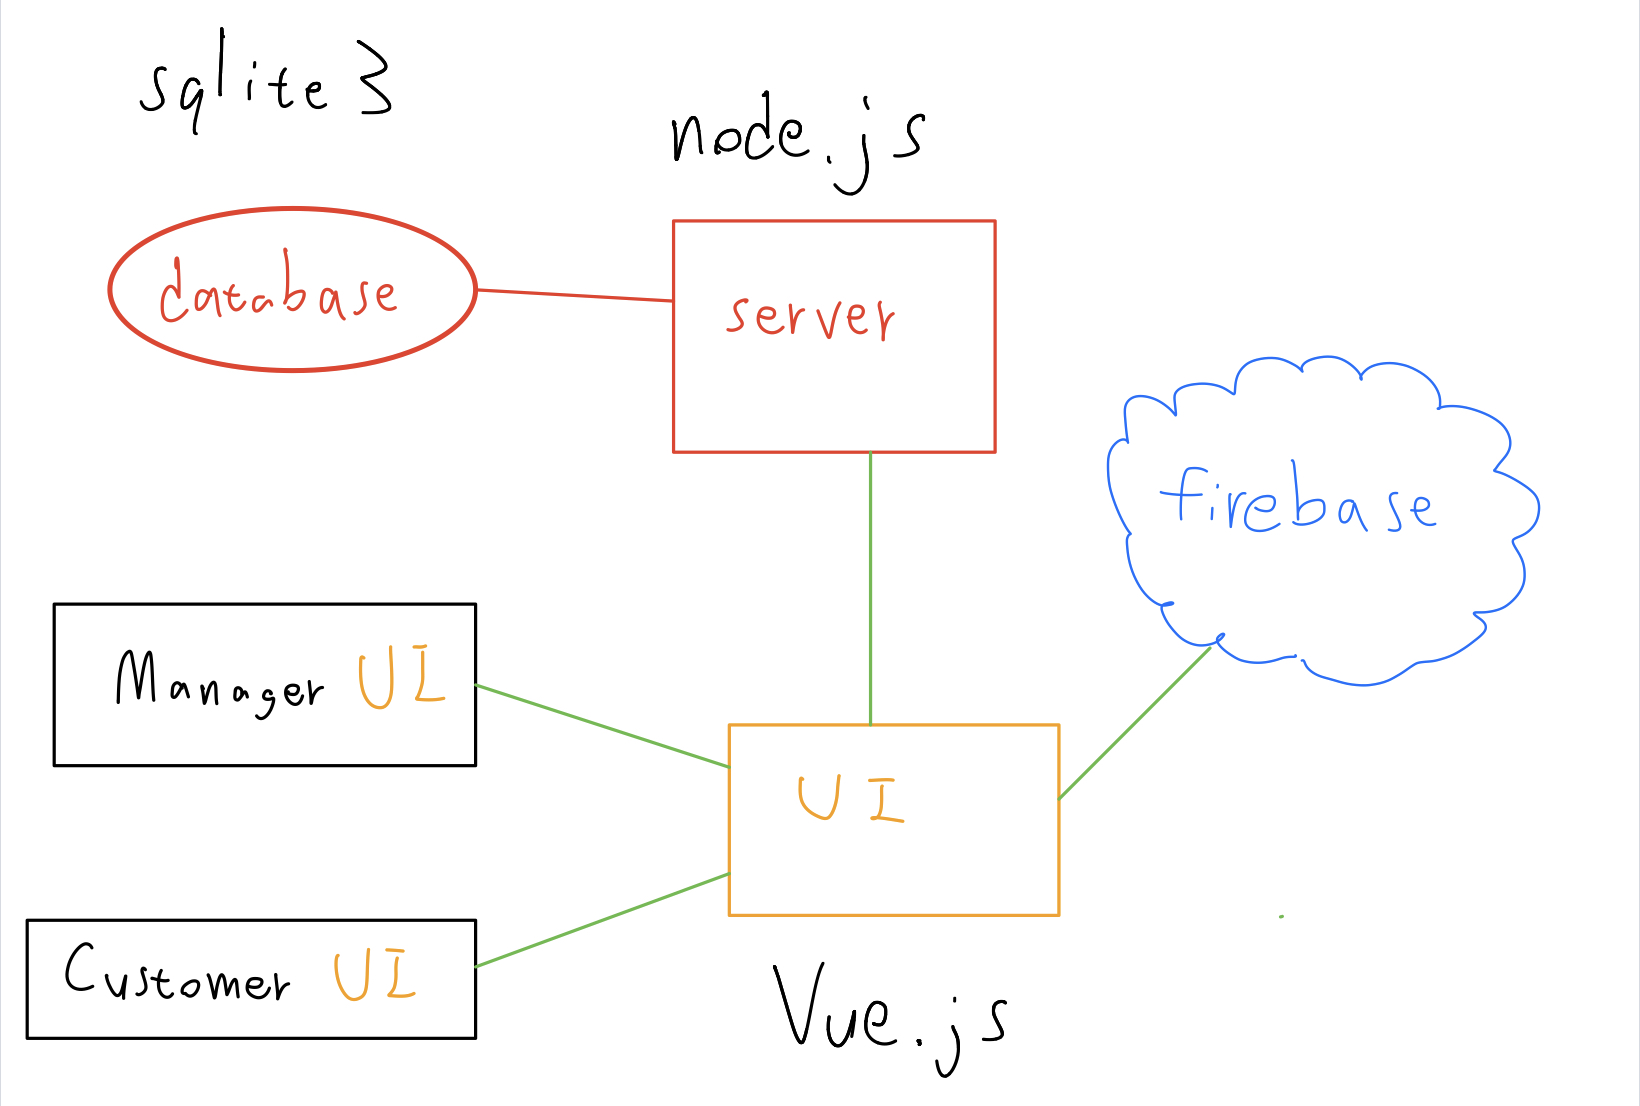 sqlite3
node.js
database
server
firebase
Manager UI
UI
Customer UI
Vue.js